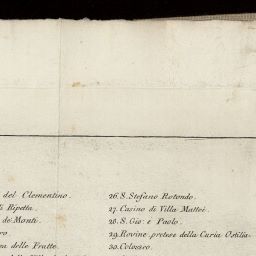 del Clementino.
Ripetta.
de Monti.
delle Fratte.
26. S. Stefano Rotondo.
27. Casino di Villa Mattei.
28. S. Gio: e Paolo.
29. Rovine pretese della Curia Ostilia.
30. Colosseo.